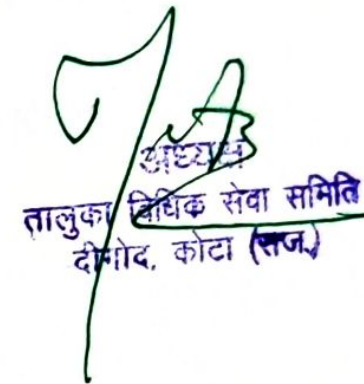 अध्यक्ष
तालुका विधिक सेवा समिति
दीगोद, कोटा (राज.)